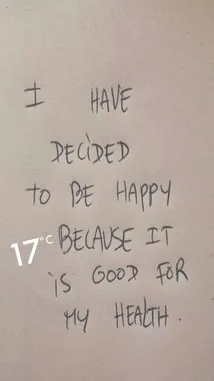 I HAVE
DECIDED
TO BE HAPPY
17°C BECAUSE IT
IS GOOD FOR
MY HEALTH.